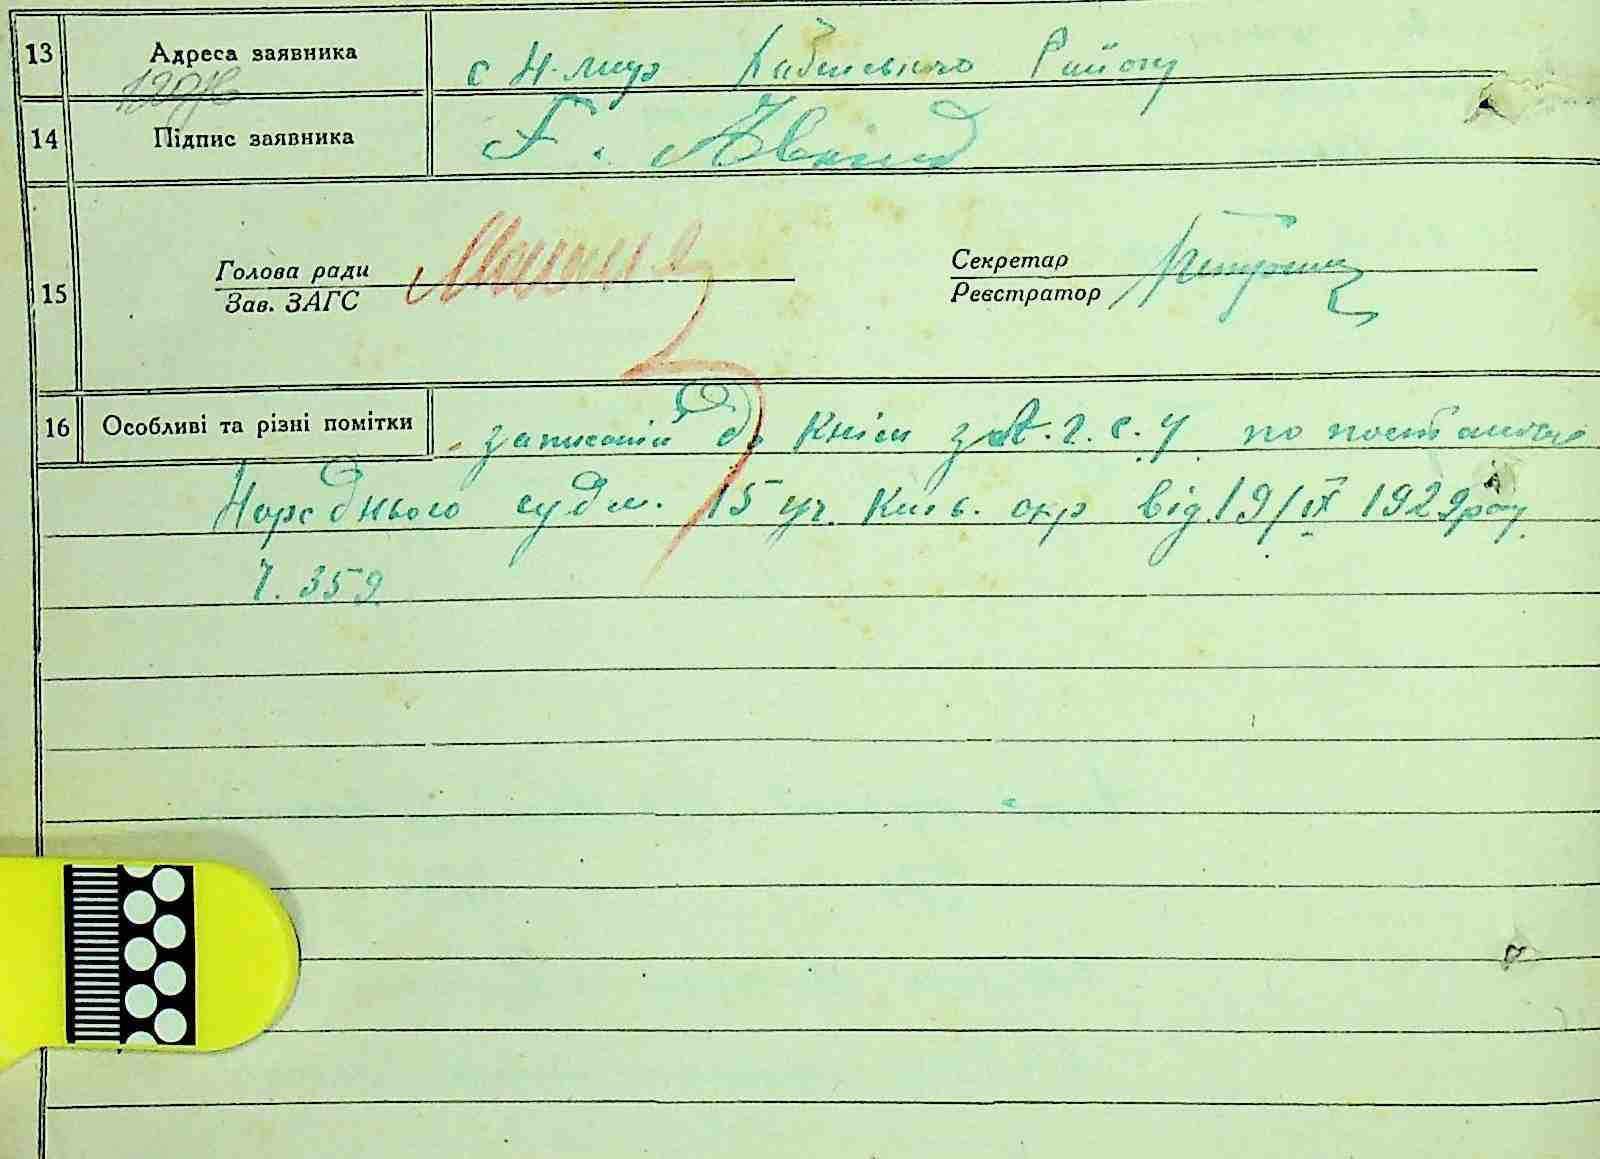 13 Адреса заявника с Району
14 Підпис заявника
15 Голова ради
Зав. ЗАГС
Секретар
Реєстратор
16 Особливі та різні помітки записаній до Кніги З.А.Г.С.у по постанові
Народнього суда. 15 уч. Київ. окр від 19/IX 1929 року
Ч. 359